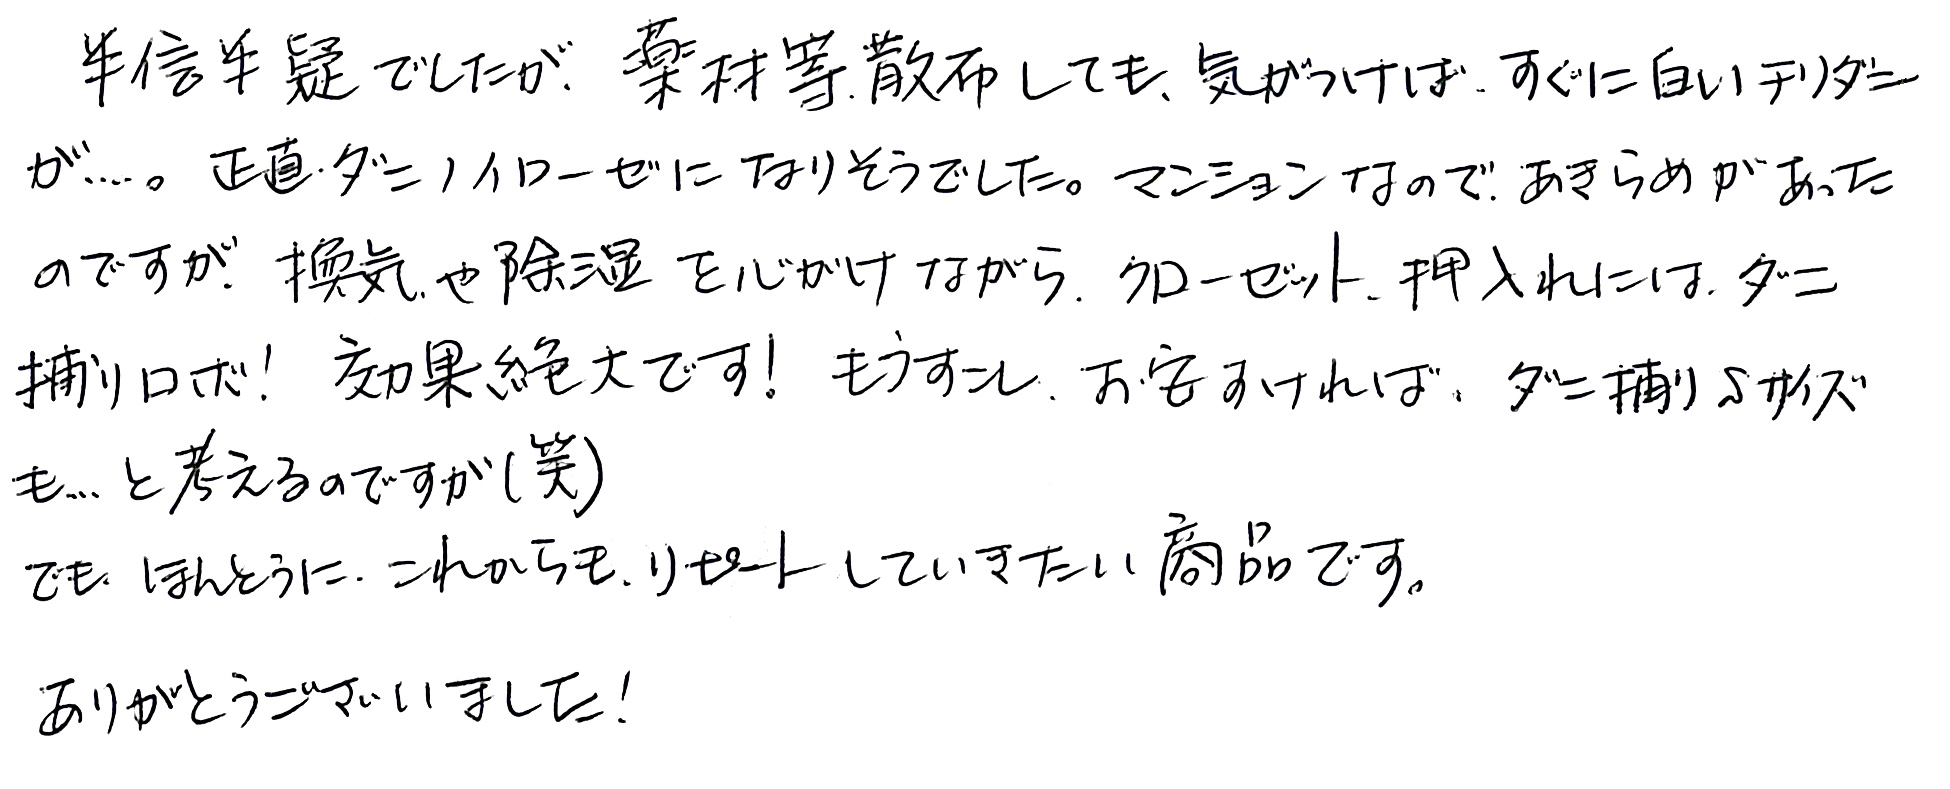 半信半疑でしたが、薬材等、散布しても、気がつけば、すぐに白いチリダニ
が…。正直、ダニノイローゼになりそうでした。マンションなので、あきらめがあった
のですが、換気や除湿を心がけながら、クローゼット、押入れには、ダニ
捕りロボ！効果絶大です！もうすこし、お安すければ、ダニ捕りSサイズ
も…と考えるのですが(笑)
でも、ほんとうに、これからも、リピートしていきたい商品です。
ありがとうございました！